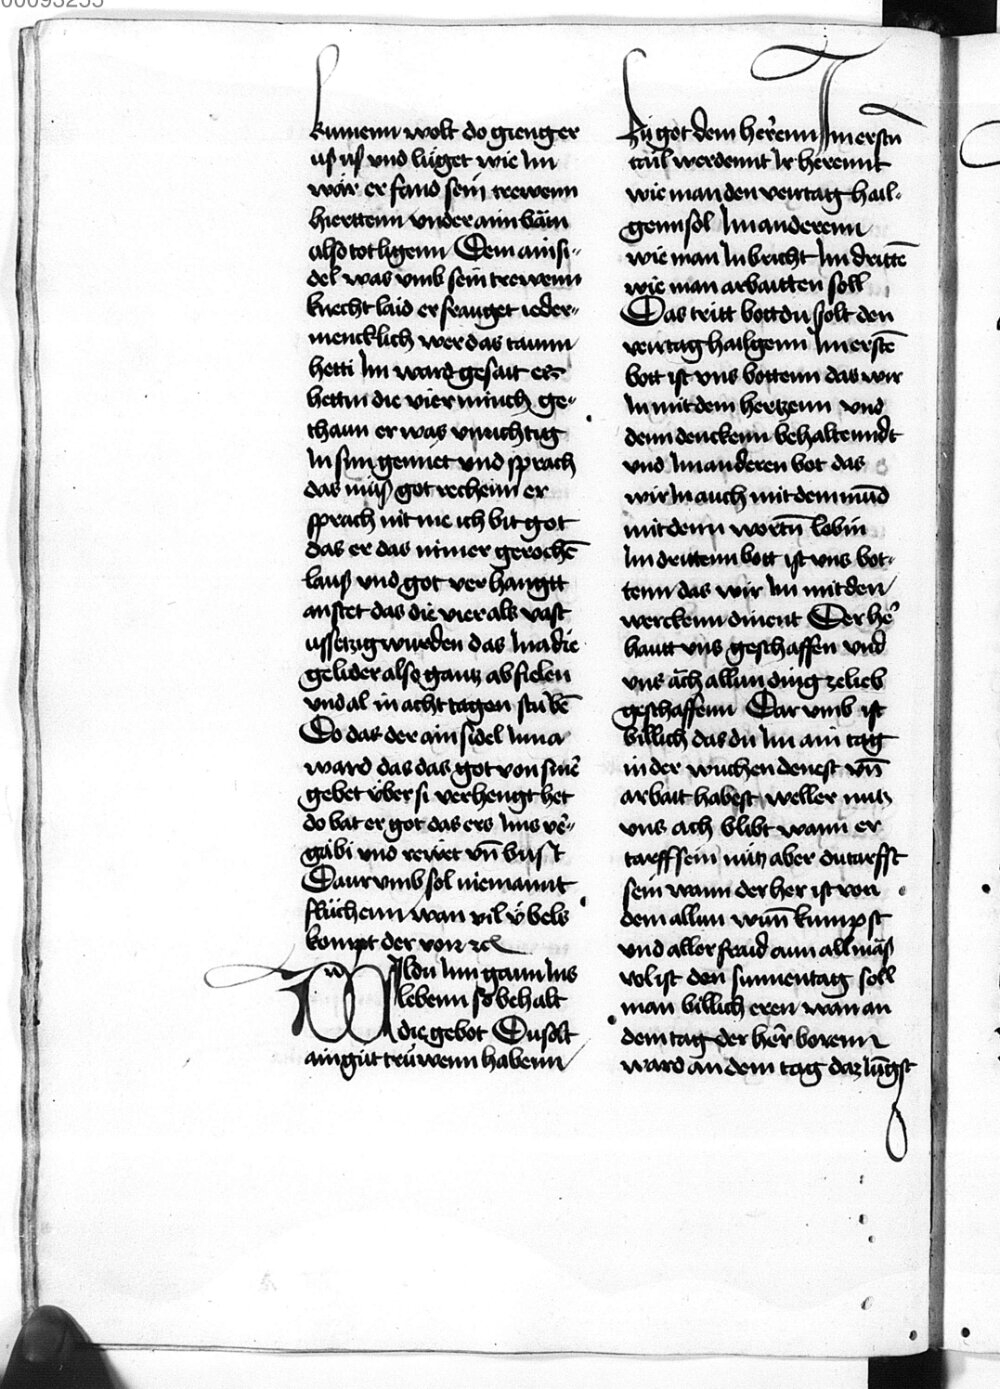 00093255
kumenn wolt do gieng er
uß uß vnd lůget wie Im
wär er fand sein trewenn
hierttenn vnder aim bäm
also tot ligenn Dem ainsi-
del was vmb sein trewenn
knecht laid er frauget ieder-
mencklich wer das taum
hetti Im ward gesait es
hettin die vier münch ge-
thaun er was vnrichtig
In sim gemiet vnd sprach
das müß got rechenn er
sprach nit me ich bit got
das er das nimer gerochē
lauß vnd got verhangtt
an stet das die vier als vast
ussetzig wurden das In adie
gelider also gantz ab fielen
vnd al in acht tagen stůbē
Do das der ainsidel Inna
ward das das got von sinē
gebet über si verhengt het
do bat er got das ers Ins vē-
gäbi vnd rewet vn̄ bůst
Daurvmb sol niemannt
flůchenn wan vil v̈bels
kompt der von ꝛc
Wildu Inn gaun Ins
lebenn so behalt
die gebot Du solt
ain gůt trüwenn habenn
Zů got dem herenn Im erstn̄
tail werdennt Ir herennt
wie man den veirtag hail-
genn sol Im anderenn
wie man In bricht Im drittē
wie man arbaitten soll
Das tritt bott du solt den
veirtag hailgenn Im erstē
bott ist vns bottenn das wir
In mit dem hertzenn vnd
denn denckenn behaltenndt
vnd Im anderen bot das
wir In auch mit dem mūd
mit denn wortn̄ lobin
Im drittenn bott ist vns bot-
tenn das wir Im mit den
werckenn dinent Der her
hautt vns geschaffen vnd
vns äch allun ding ze lieb
geschaffenn Dar vmb ist
billich das du Im ain tag
in der wuchen denest vn̄
arbait habest weller nutz
vns ach blibt wann er
tarff sein nütz aber du tarfst
sein wann der her ist von
dem allun wun̄ kumpst
vnd aller fraid aun all mäß
vol ist den sunnentag soll
man billich eren wan an
dem tag der her borenn
ward an dem tag daz Iūgst